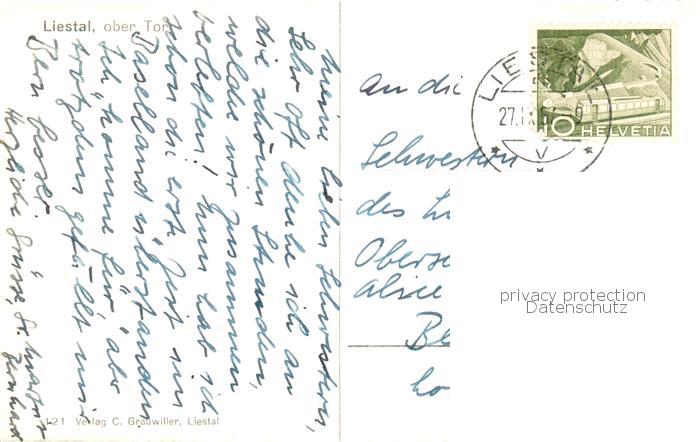 Liestal, ober Tor
Meine lieben Schwestern,
Sehr oft denke ich an
die schönen Stunden,
welche wir zusammen
verlebten! Nun hab ich
schon die erste Zeit im
Baselland überstanden
Ich "komme für" aber
trotzdem gefällt mir
Bern besser.
Herzliche Grüsse, Sr.
121 Verlag C. Grauwiller, Liestal
An die
Schwestern
des
Oberse
Alice
Be
LIESTAL
27.IX.57
10 HELVETIA
V
privacy protection
Datenschutz